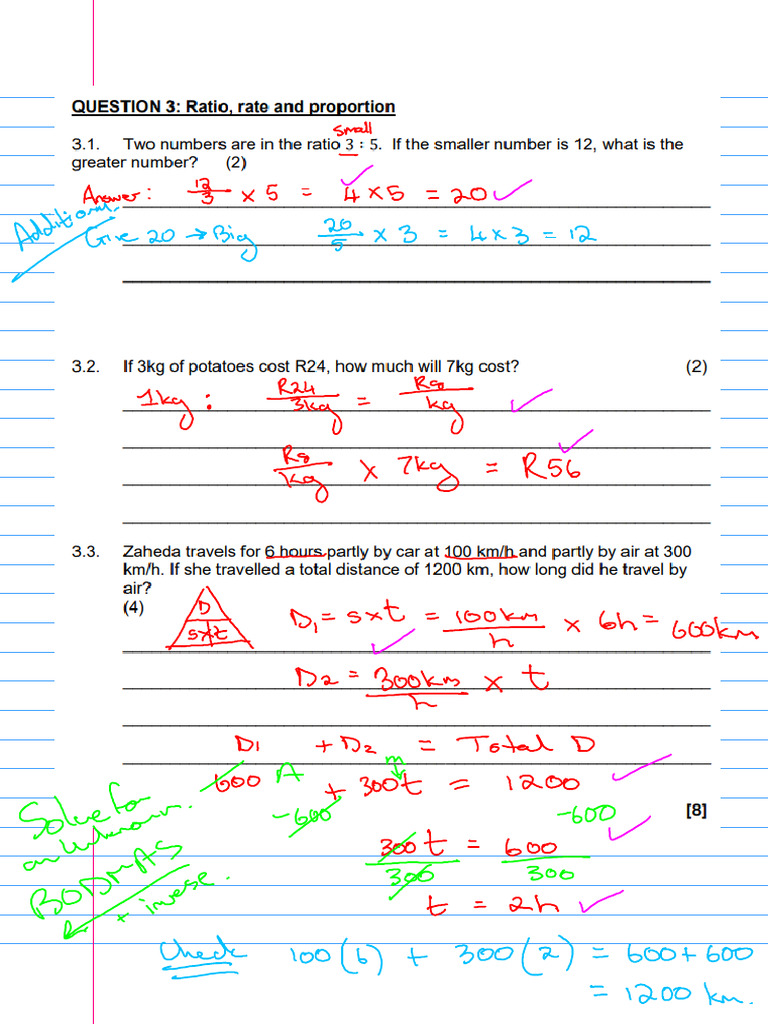 QUESTION 3: Ratio, rate and proportion
small
3.1. Two numbers are in the ratio 3 : 5. If the smaller number is 12, what is the
greater number? (2)
Answer: 12/3 × 5 = 4 × 5 = 20
Additional
Give 20 → Big 20/5 × 3 = 4 × 3 = 12
3.2. If 3kg of potatoes cost R24, how much will 7kg cost? (2)
1kg: R24/3kg = R8/kg
R8/kg × 7kg = R56
3.3. Zaheda travels for 6 hours partly by car at 100 km/h and partly by air at 300
km/h. If she travelled a total distance of 1200 km, how long did he travel by
air?
(4)
D
s×t
D1 = s×t = 100km/h × 6h = 600km
D2 = 300km/h × t
D1 + D2 = Total D
A m
600 + 300t = 1200
-600 -600
[8]
300t/300 = 600/300
t = 2h
Solve for
an unknown.
BODMAS
+ inverse.
Check 100(6) + 300(2) = 600 + 600
= 1200 km.